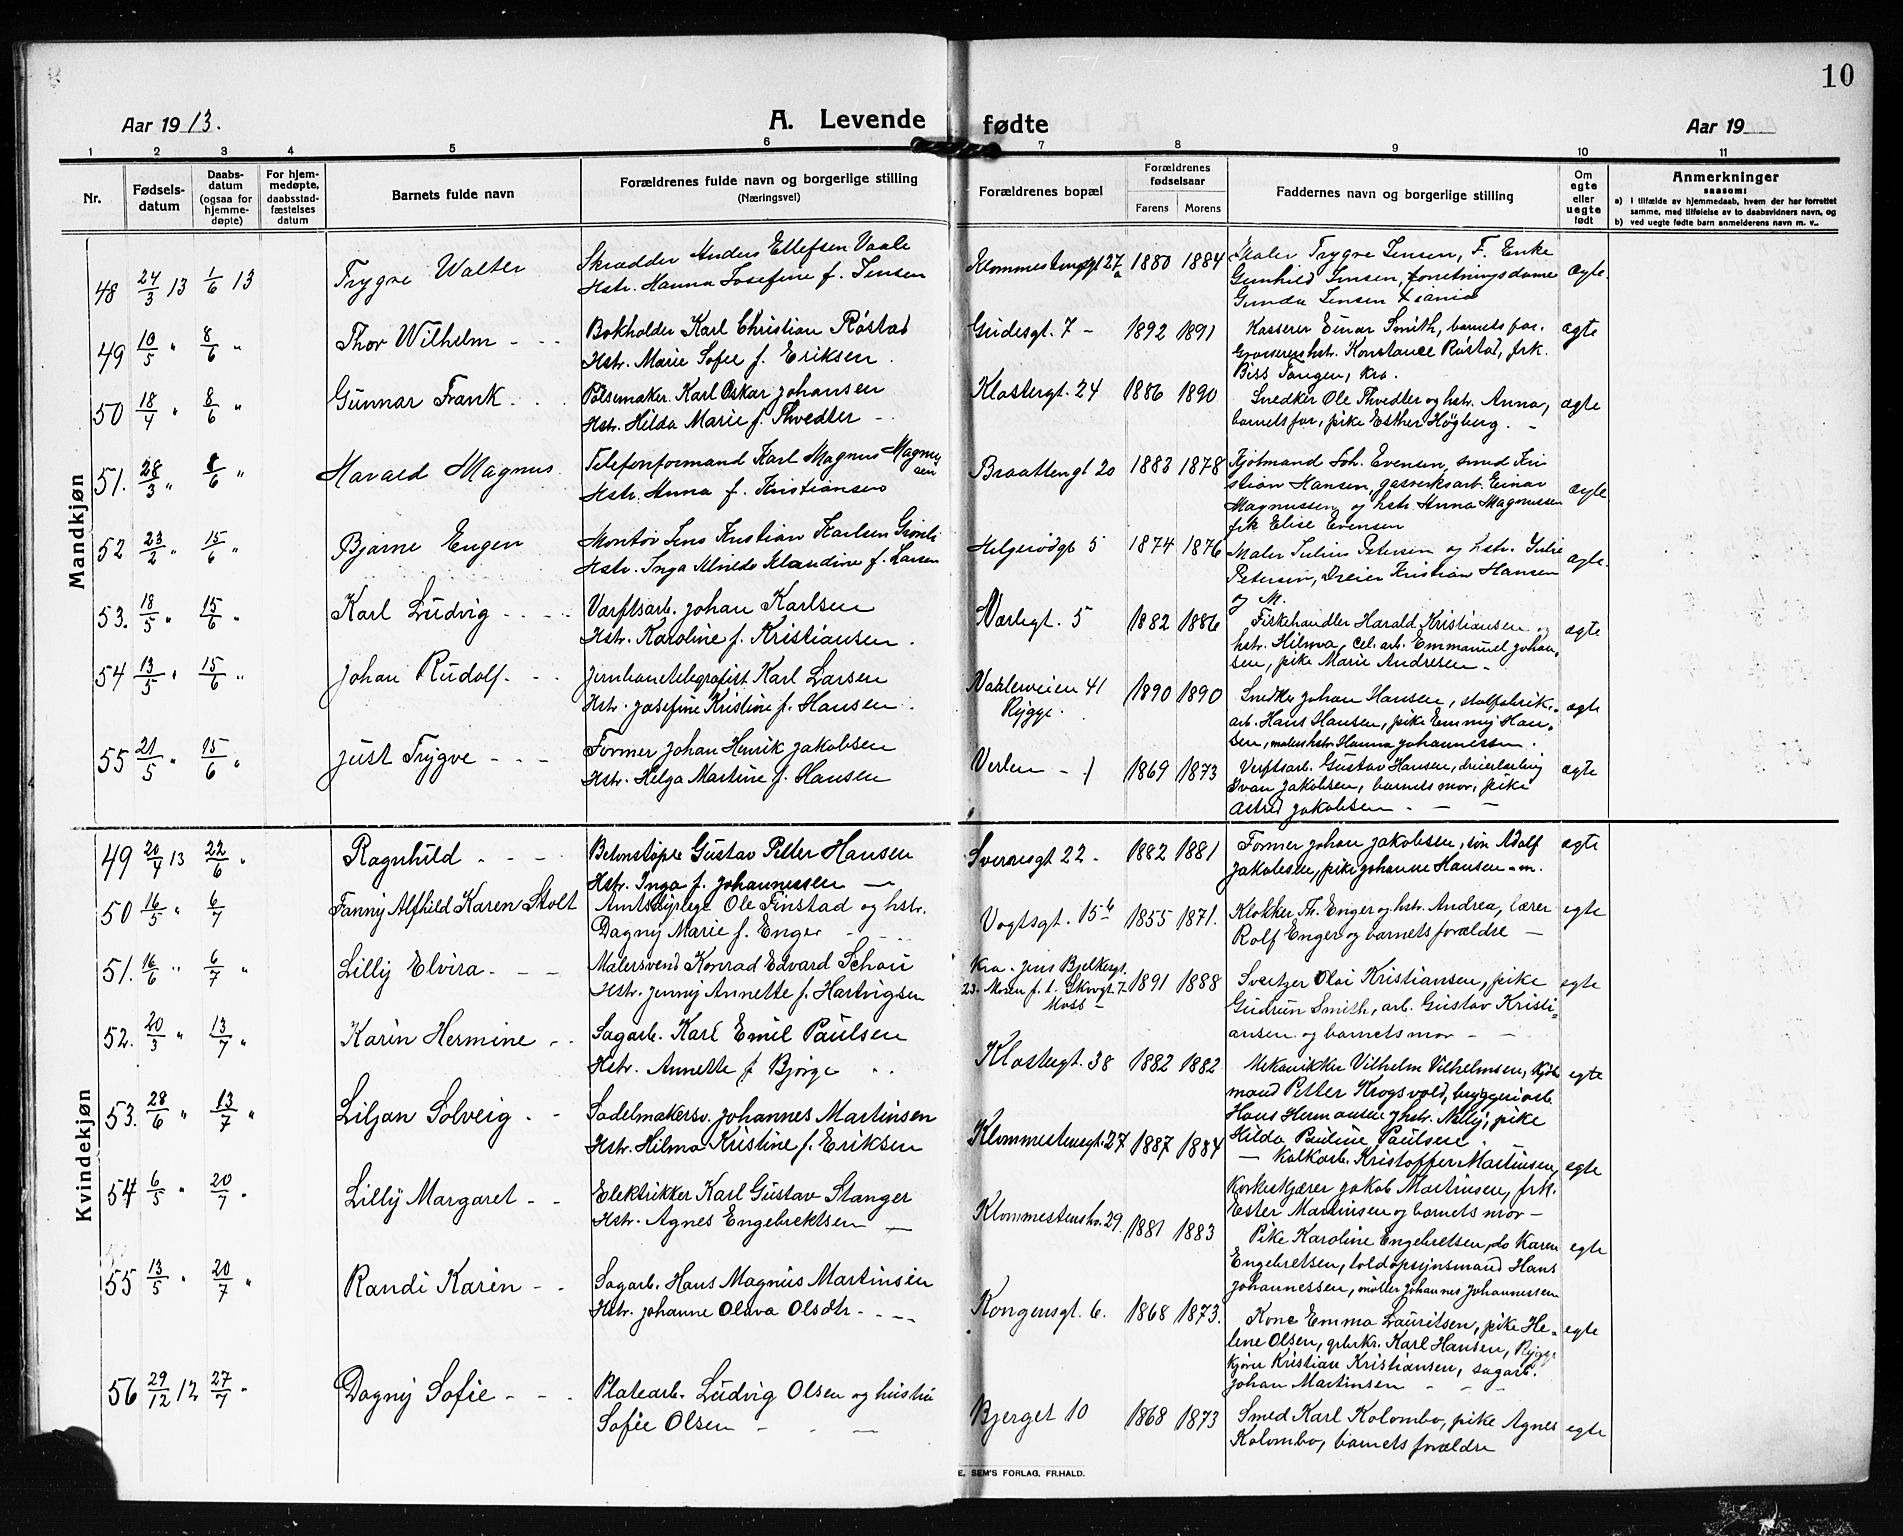 10
Aar 1913.
A. Levende fødte
Aar 19
1 2 3 4 5 6 7 8 9 10 11
Nr.
Fødsels-
datum
Daabs-
datum
(ogsaa for
hjemme-
døpte)
For hjem-
medøpte,
daabsstad-
fæstelses
datum
Barnets fulde navn
Forældrenes fulde navn og borgerlige stilling
(Næringsvei)
Forældrenes bopæl
Forældrenes
fødselsaar
Farens Morens
Faddernes navn og borgerlige stilling
Om
egte
eller
uegte
født
Anmerkninger
saasom:
a) i tilfælde av hjemmedaab, hvem der har forrettet
samme, med tilføielse av to daabsvidners navn, og
b) ved uegte fødte barn anmelderens navn m. v..
Mandkjøn
48 24/3 13 1/6 13 Trygve Walter
Skrædder Anders Ellefsen Vaale
Hstr. Hanna Josefine f. Jensen
Klommestengt 27a 1880 1884
Maler Trygve Jensen, F. Enke
Gunhild Jensen, forretningsdame
Gunda Jensen Kiania
ægte.
49 10/5 " 8/6 " Thor Wilhelm - - -
Bokholder Karl Christian Røstad
Hstr. Marie Sofie f. Eriksen.
Gudesgt. 7 - 1892 1891
Kasserer Einar Smith, barnets far.
Grosserershstr. Konstance Røstad, frk.
Biss Tangen, Kra.
ægte
50 18/4 " 8/6 " Gunnar Frank. - -
Pølsemaker. Karl Oskar Johansen
Hstr. Hilda Marie f. Thvedter -
Klostergt. 24 1886 1890
Snedker Ole Thvedter og hstr. Anna,
barnets far, pike Esther Høgberg. -
ægte
51. 28/3 " 8/6 " Harald Magnus
Telefonformand Karl Magnus Magnus
sen
Hstr. Anna f. Kristiansen
Braattengt 20 1883 1878
Kjømand Joh. Evensen, smed Kri
stian Hansen, gasverksarb. Einar
Magnussen og hstr. Anna Magnussen
frk Elise Evensen
ægte
52 23/2 " 15/6 " Bjarne Eugen
Montør Jens Kristian Karlsen Grønli
Hstr. Inga Alvilde Klaudine f. Larsen
Helgerødgt 5 1874 1876
Maler Julius Petersen og hstr. Julie
Petersen, Dreier Kristian Hansen
og M.
ægte.
53. 18/5 " 15/6 " Karl Ludvig - - - -
Værftsarb. Johan Karlsen
Hstr. Karoline f. Kristiansen.
Varlegt. 5 1882 1886
Fiskehandler Harald Kristiansen og
hstr. Hilma, cel. arb. Emmanuel Johan-
sen, pike Marie Andresen -
ægte
54 13/5 " 15/6 " Johan Rudolf. - -
Jernbanetelegrafist Karl Larsen
Hstr. Josefine Kristine f. Hansen.
Vahlerveien 41
Rygge.
1890 1890
Snedker Johan Hansen, stolfabrik-
arb. Hans Hansen, pike Emmy Han-
sen, malershstr Hanna Johannessen.
ægte
55 21/5 " 15/6 " Just Trygve - - -
Former Johan Henrik Jakobsen
Hstr. Helga Martine f. Hansen
Verlen - 1 1869 1873
Verftsarb. Gustav Hansen, dreierlærling
Ivan Jakobsen, barnets mor, pike
Astrid Jakobsen. - -
ægte
Kvindekjøn
49 20/4 13 22/6 " Ragnhild - - - -
Betonstøper Gustav Petter Hansen
Hstr. Inga f. Johannessen -
Sverresgt 22 - 1882 1881
Former Johan Jakobsen, søn Adolf
Jakobsen, pike Johanne Hansen - m.
ægte
50 16/5 " 6/7 Fanny Alfhild Karen Stolt
Amtsdyrlæge Ole Finstad og hstr.
Dagny Marie f. Enger - - - -
Vogtsgt. 15b 1855 1871.
Klokker Th. Enger og hstr. Andrea, lærer
Rolf Enger og barnets forældre -
egte
51. 16/6 " 6/7 " Lilly Elvira - - -
Malersvend Konrad Edvard Schou
Hstr. Jenny Annette f. Hartvigsen
Kra. Jens Bjelkesgt.
23. Moren f. t. Skovgt. 7
Moss -
1891 1888
Sveitzer Olai Kristiansen, pike
Gudrun Smith, arb. Gustav Kristi-
ansen og barnets mor - -
egte
52. 20/3 " 13/7 " Karin Hermine - -
Sagarb. Karl Emil Paulsen
Hstr. Annette f Bjørge - -
Klostergt. 38 1882 1882
Mekanikker Vilhelm Vilhelmsen, Kjøb-
mand Petter Krogsvold, bryggeriarb.
Hans Hermansen og hstr. Nelly, pike
Hilda Pauline Paulsen
egte
53. 28/6 " 13/7 " Liljan Solveig - -
Sadelmakersv. Johannes Martinsen
Hstr. Hilma Kristine f. Eriksen
Klommestensgt. 27 1887 1884
- Kalkarb. Kristoffer Martinsen,
Korkskjærer Jakob Martinsen, frk.
Ester Martinsen og barnets mor -
egte
54 6/5 " 20/7 " Lilly Margaret - -
Elektrikker Karl Gustav Stanger
Hstr. Agnes Engebrektsen -
Klommestensv. 29. 1881 1883
Pike Karoline Engebretsen, do Karen
Engebretsen, toldopsynsmand Hans
Johannessen, møller Johannes Johannessen
egte
55 13/5 " 20/7 " Randi Karin - -
Sagarb. Hans Magnus Martinsen
Hstr. Johanne Olava Olsdtr - - - -
Kongensgt. 6. 1868 1873.
Kone Emma Lauritsen, pike He-
lene Olsen, grbrkr. Karl Hansen, Rygge
kjører Kristian Kristiansen, sagarb.
Johan Martinsen - - -
egte
56 29/12 12 27/7 " Dagny Sofie - - -
Platearb. Ludvig Olsen og hustru
Sofie Olsen - - -
Bjerget 10 1868 1873
Smed Karl Kolombo, pike Agnes
Kolombo, barnets forældre
egte
E. SEM'S FORLAG, FR.HALD.